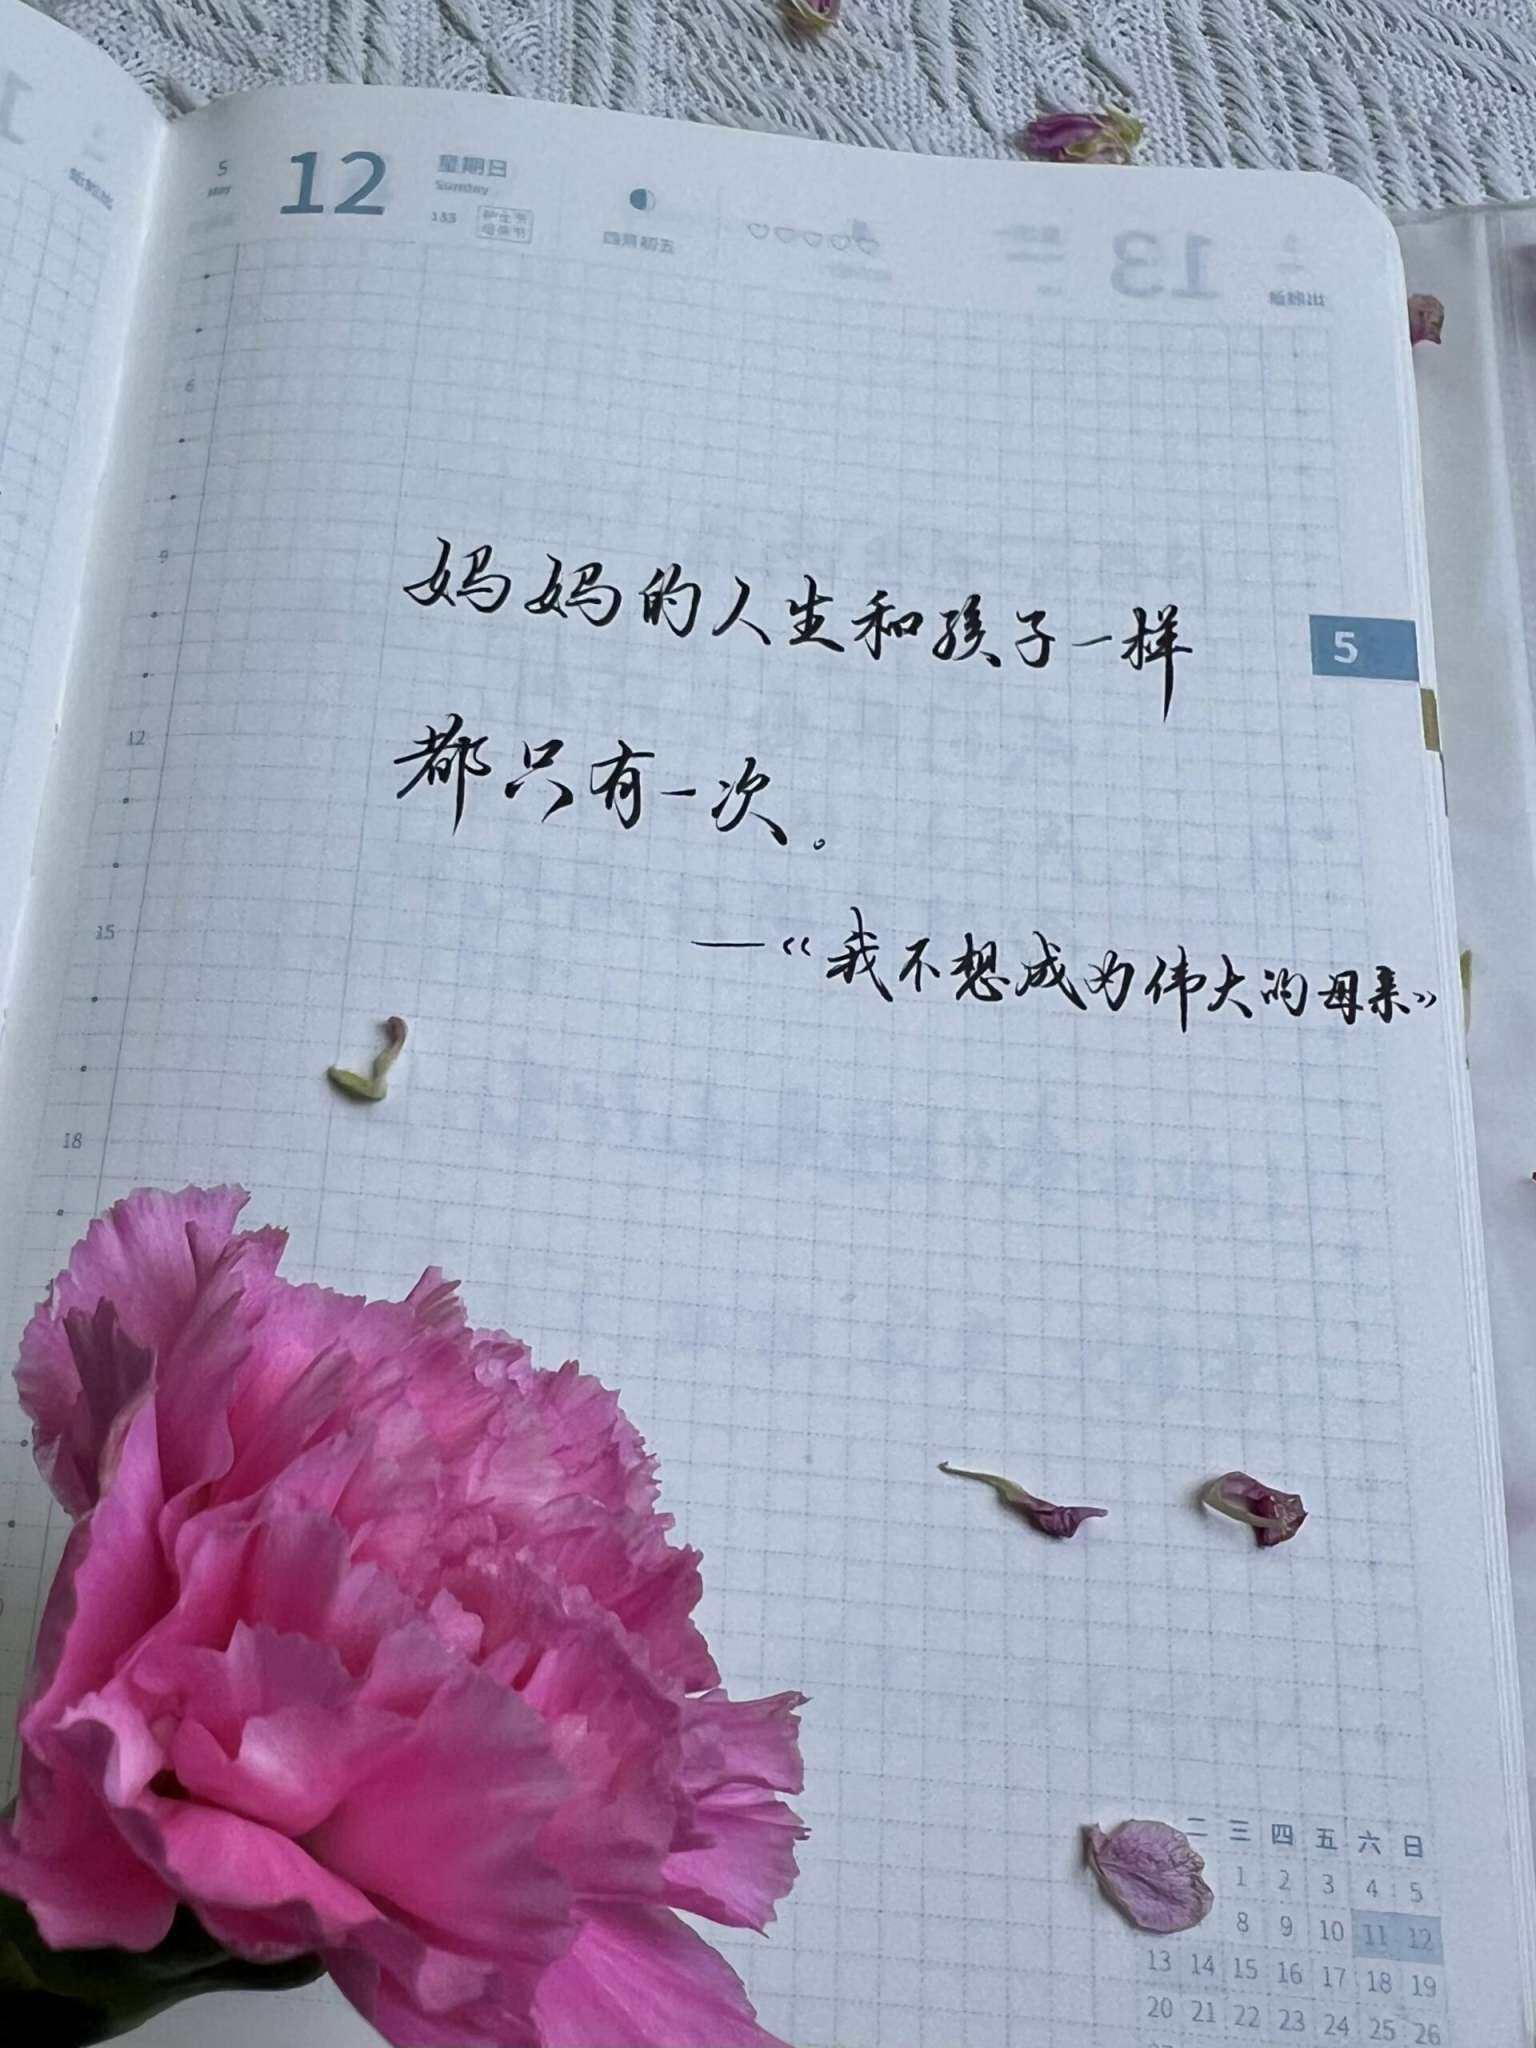 5
May
12
星期日
Sunday
133
护士节
母亲节
四月初五
6
9
妈妈的人生和孩子一样
5
12
都只有一次。
15
——《我不想成为伟大的母亲》
18
二 三 四 五 六 日
1 2 3 4 5
8 9 10 11 12
13 14 15 16 17 18 19
20 21 22 23 24 25 26